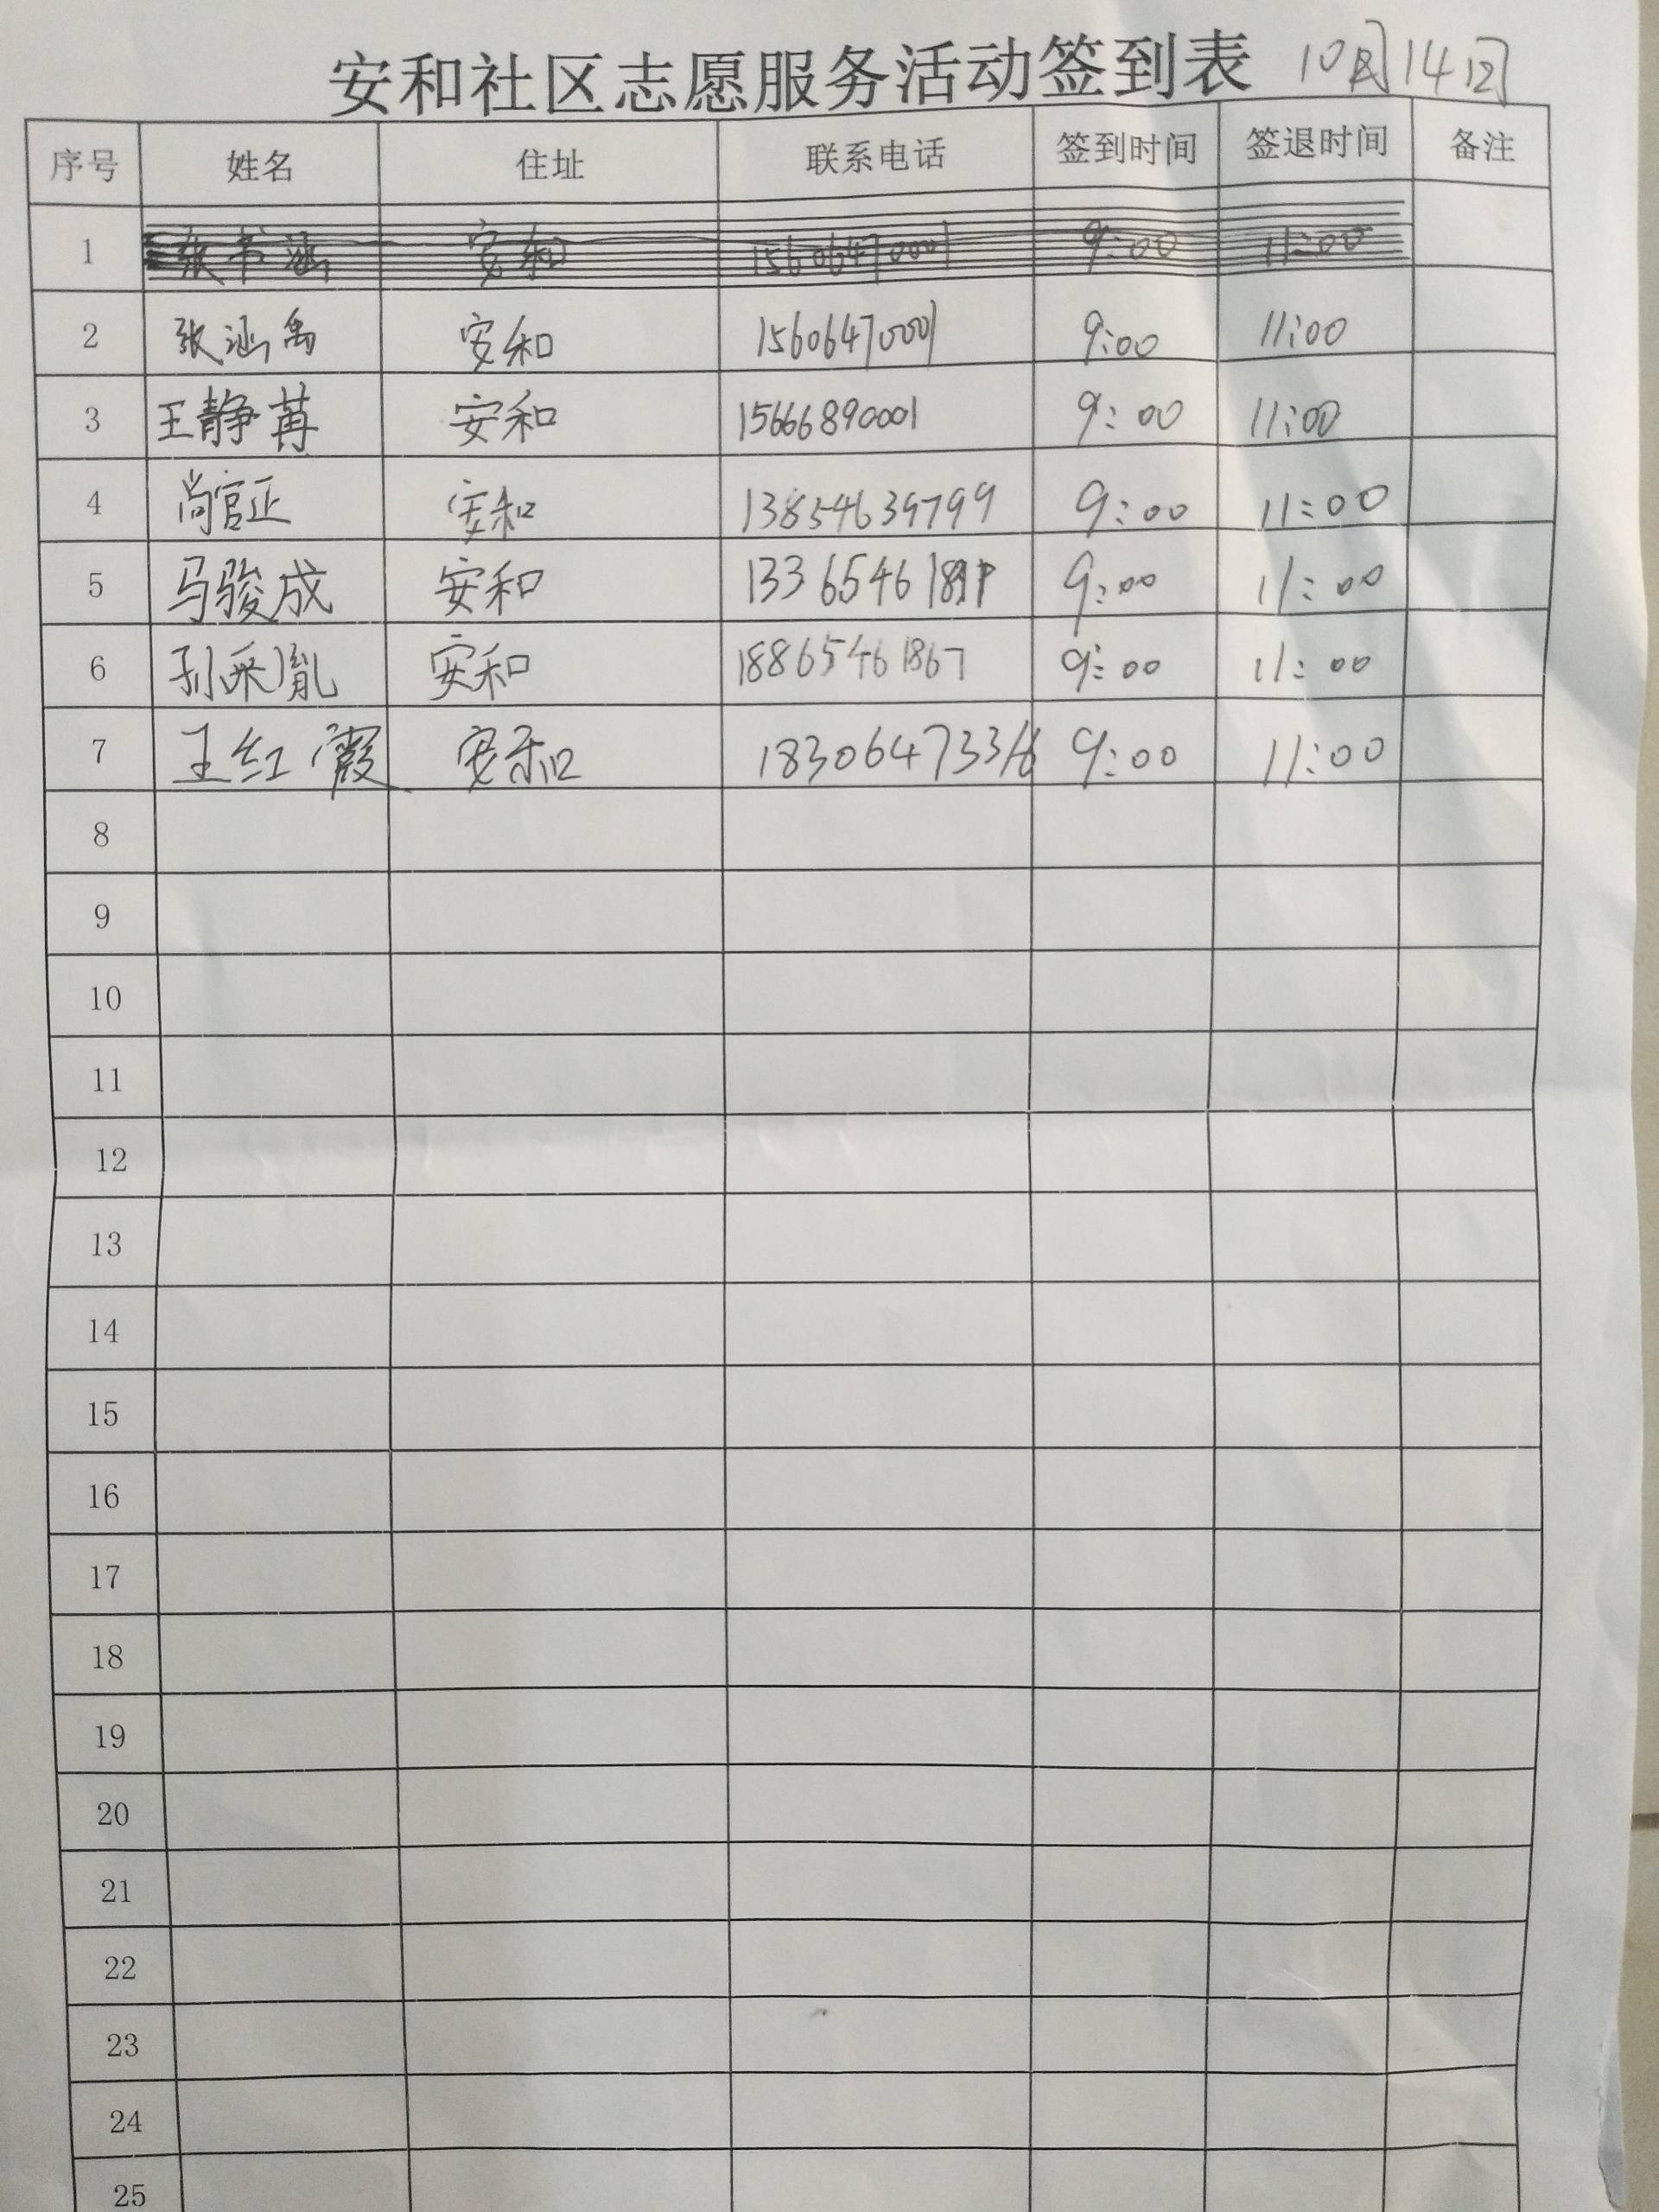 安和社区志愿服务活动签到表 10月14日
序号 姓名 住址 联系电话 签到时间 签退时间 备注
1 张书涵 安和 15606470001 9:00 11:00
2 张涵禹 安和 15606470001 9:00 11:00
3 王静苒 安和 15666890001 9:00 11:00
4 尚官正 安和 13854639799 9:00 11:00
5 马骏成 安和 9:00 11:00
6 孙采胤 安和 18865461867 9:00 11:00
7 王红霞 安和 9:00 11:00
8
9
10
11
12
13
14
15
16
17
18
19
20
21
22
23
24
25